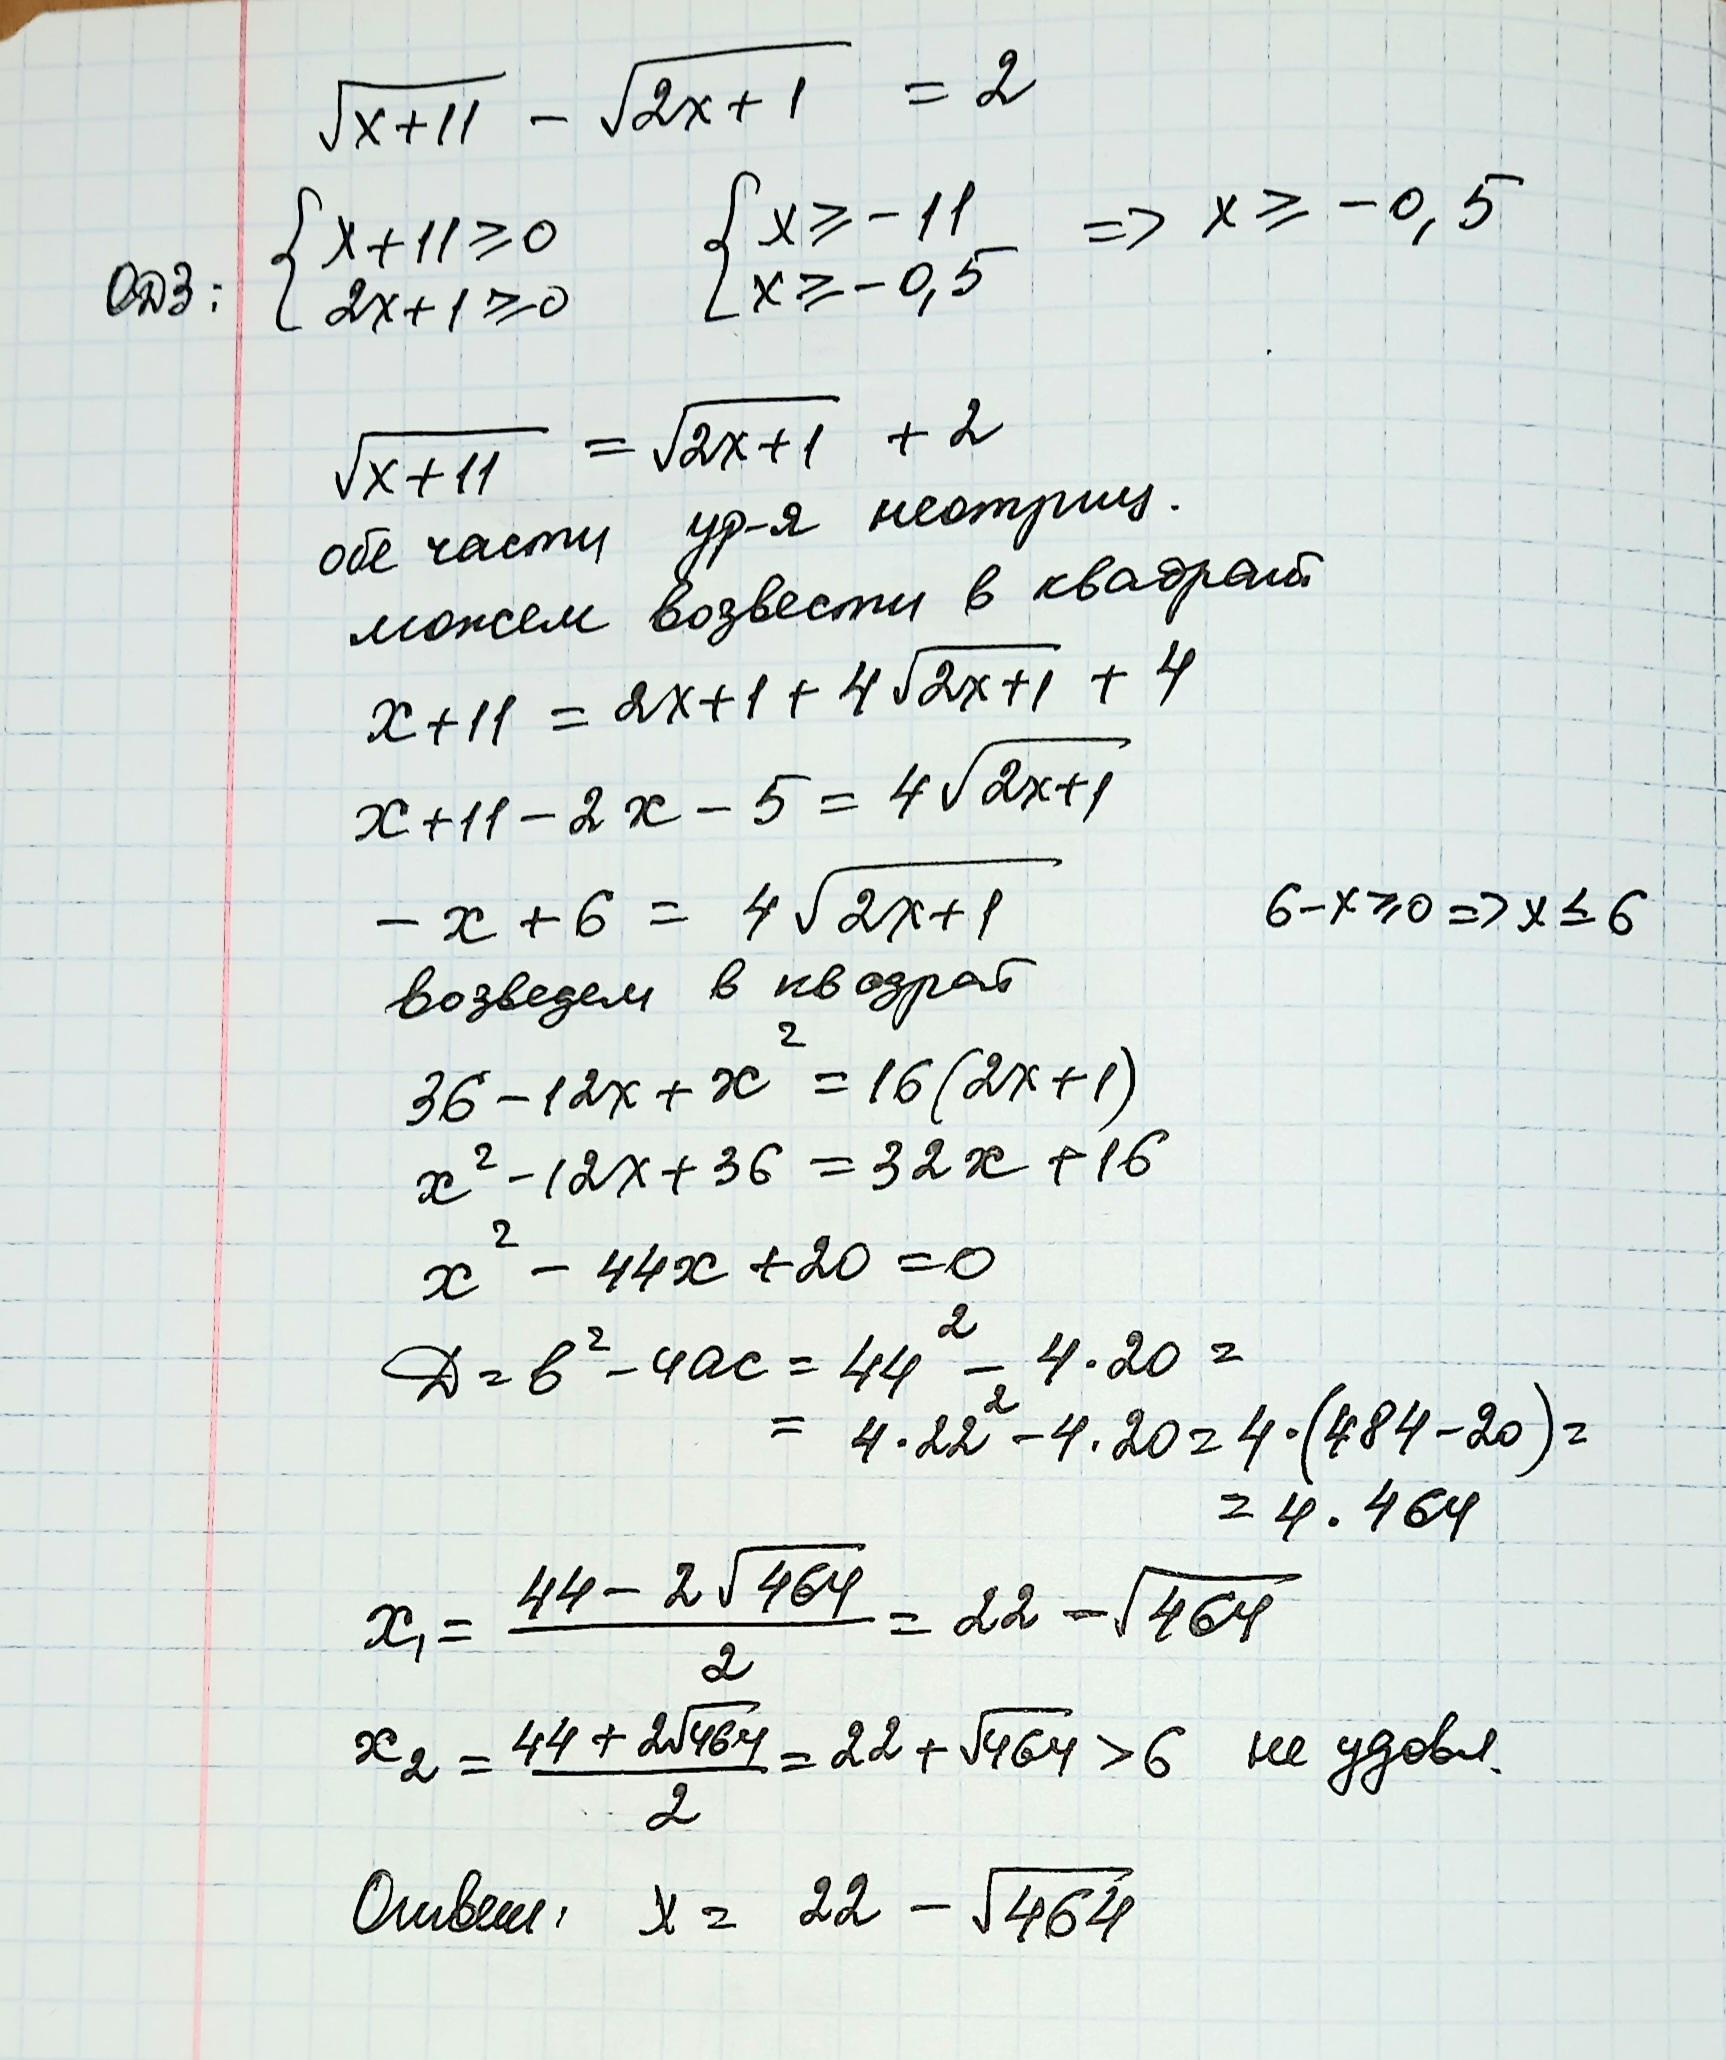 √(x+11) - √(2x+1) = 2
ОДЗ: { x+11 ≥ 0 { x ≥ -11 => x ≥ -0,5
2x+1 ≥ 0 x ≥ -0,5
√(x+11) = √(2x+1) + 2
обе части ур-я неотриц.
можем возвести в квадрат
x+11 = 2x+1+4√(2x+1) + 4
x+11-2x-5 = 4√(2x+1)
-x+6 = 4√(2x+1) 6-x ≥ 0 => x ≤ 6
возведем в квадрат
36-12x+x² = 16(2x+1)
x²-12x+36 = 32x+16
x² - 44x + 20 = 0
D = b²-4ac = 44² - 4·20 =
= 4·22² - 4·20 = 4·(484-20) =
= 4·464
x₁ = (44-2√464)/2 = 22-√464
x₂ = (44+2√464)/2 = 22+√464 > 6 не удовл.
Ответ: x = 22 - √464